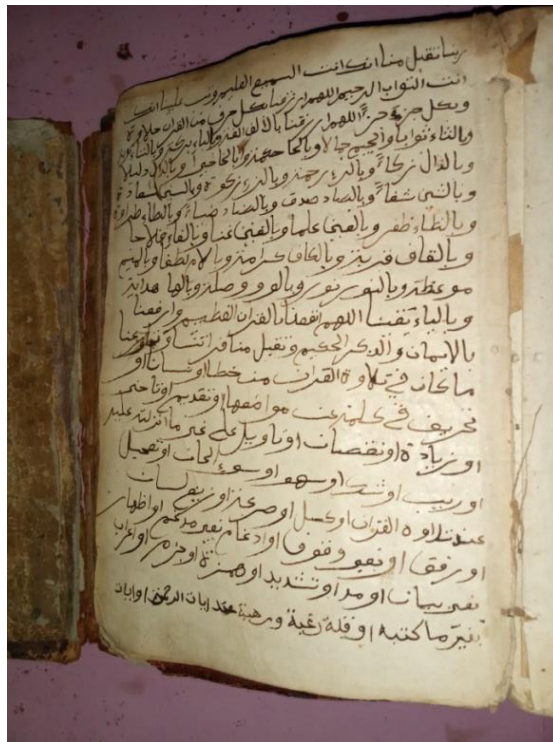 ربنا تقبل منا انك انت السميع العليم وتب علينا انك
انت التواب الرحيم اللهم ارزقنا بكل حرف من القران حلاوة
وبكل جزء جزاء اللهم ارزقنا بالالف الفة وبالباء بركة وبالتاء توبة
وبالثاء ثوابا وبالجيم جمالا وبالحاء حكمة وبالخاء خيرا وبالدال دليلا
وبالذال ذكاء وبالراء رحمة وبالزاي زكوة وبالسين سعادة
وبالشين شفاء وبالصاد صدقا وبالضاد ضياء وبالطاء طراوة
وبالظاء ظفرا وبالعين علما وبالغين غنا وبالفاء فلاحا
وبالقاف قربة وبالكاف كرامة وبالام لطفا وبالميم
موعظة وبالنون نور وبالواو وصلة وبالهاء هداية
وبالياء يقينا اللهم انفعنا بالقران العظيم وارفعنا
بالايات والذكر الحكيم وتقبل منا قراتنا وتجاوز عنا
ما كان في تلاوة القران من خطا او نسيان او
تحريف في كلمة عن مواضعها او تقديم او تاخير
او زيادة او نقصان او تاويل على غير ما انزلته عليه
او ريب او شك او سهو او سوء الحان او تعجيل
عند تلاوة القران او كسل او سرعة او زيغ لسان
او وقف او بغير وقوف او ادغام بغير مدغم او اظهار
بغير بيان او مد او تشديد او همزة او جزم او اعراب
بغير ما كتبه او قلة رغبة ورهبة عند ايات الرحمة او ايات